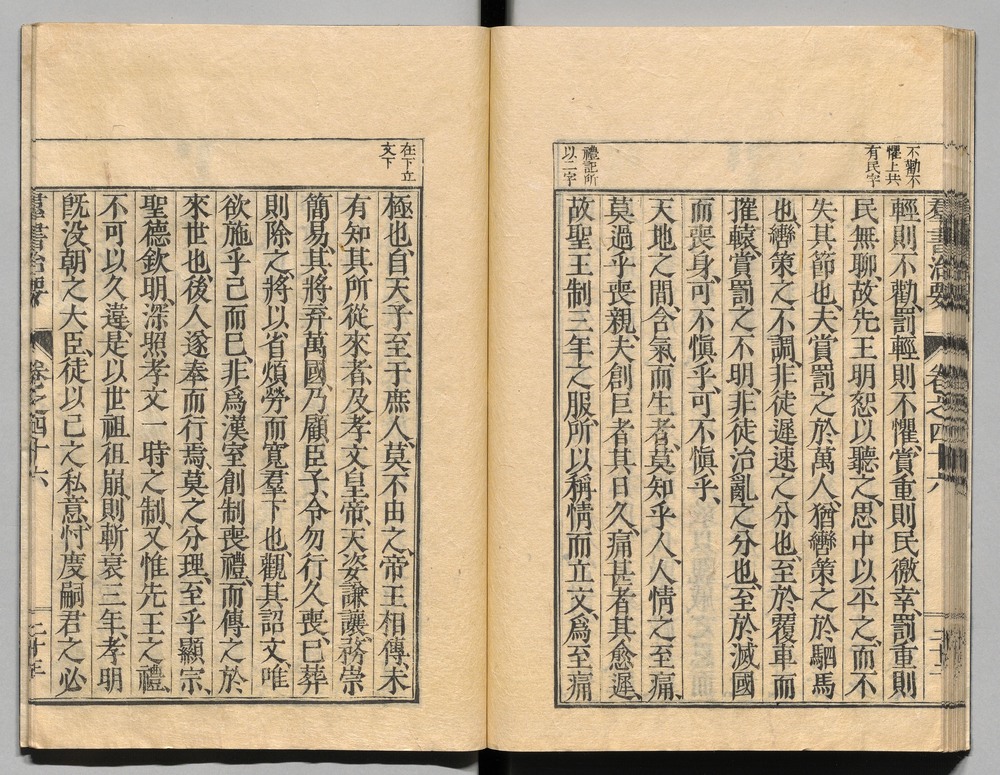 不勸不
懼上共
有民字
禮記所
以二字
羣書治要
卷之四十六
輕則不勸、罰輕則不懼、賞重則民徼幸、罰重則
民無聊、故先王明恕以聽之、思中以平之、而不
失其節也、夫賞罰之於萬人、猶轡策之於駟馬
也、轡策之不調、非徒遲速之分也、至於覆車而
摧轅、賞罰之不明、非徒治亂之分也、至於滅國
而喪身、可不慎乎、可不慎乎、
天地之間、含氣而生者、莫知乎人、人情之至痛、
莫過乎喪親、夫創巨者其日久、痛甚者其愈遲、
故聖王制三年之服、所以稱情而立文、爲至痛
在下立
文下
極也、自天子至于庶人、莫不由之、帝王相傳、未
有知其所從來者、及孝文皇帝、天姿謙讓、務崇
簡易、其將弃萬國、乃顧臣子、令勿行久喪、已葬
則除之、將以省煩勞而寬羣下也、觀其詔文、唯
欲施乎己而已、非爲漢室創制喪禮、而傳之於
來世也、後人遂奉而行焉、莫之分理、至乎顯宗、
聖德欽明、深照孝文一時之制、又惟先王之禮、
不可以久違、是以世祖徂崩、則斬衰三年、孝明
既沒、朝之大臣、徒以己之私意、忖度嗣君之必
羣書治要
卷之四十六
二十三